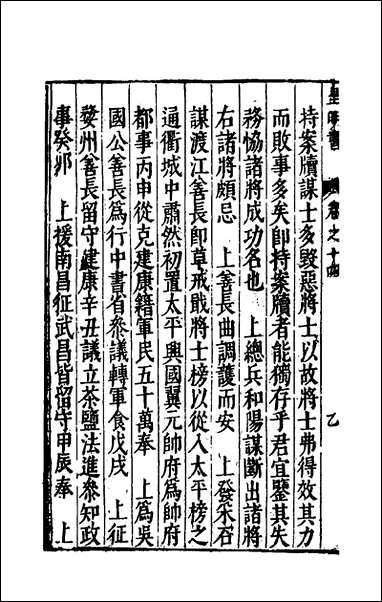 皇明書
卷之十四
乙
持案牘謀士多毀惡將士以故將士弗得效其力
而敗事多矣即持案牘者能獨存乎君宜鑒其失
務恊諸將成功名也　上總兵和陽謀斷出諸將
右諸將頗忌　上善長曲調護而安　上發采石
謀渡江善長卽草戒戢將士榜以從入太平榜之
通衢城中肅然初置太平興國翼元帥府爲帥府
都事丙申從克建康籍軍民五十萬奉　上爲吳
國公善長爲行中書省叅議轉軍食戊戌　上征
婺州善長留守建康辛丑議立茶鹽法進叅知政
事癸卯　上援南昌征武昌皆留守甲辰奉　上